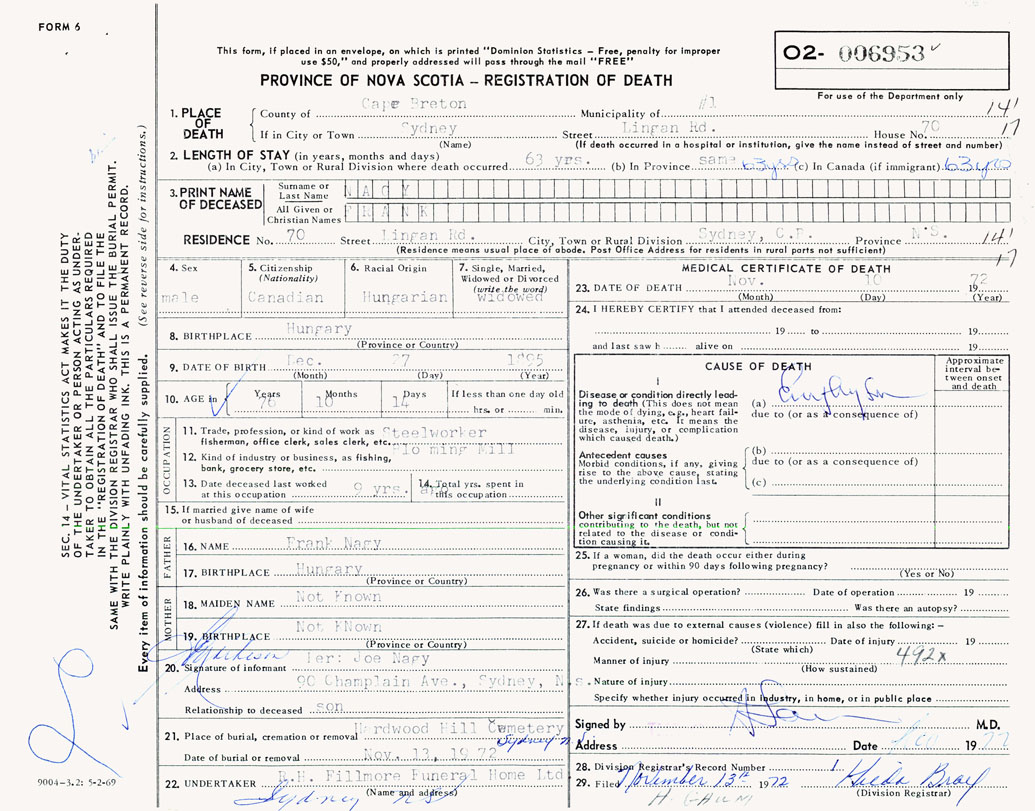 FORM 6
This form, if placed in an envelope, on which is printed "Dominion Statistics – Free, penalty for improper
use $50," and properly addressed will pass through the mail "FREE"
PROVINCE OF NOVA SCOTIA – REGISTRATION OF DEATH
O2- 006953
For use of the Department only
SEC. 14 – VITAL STATISTICS ACT MAKES IT THE DUTY
OF THE UNDERTAKER OR PERSON ACTING AS UNDER-
TAKER TO OBTAIN ALL THE PARTICULARS REQUIRED
IN THE "REGISTRATION OF DEATH" AND TO FILE THE
SAME WITH THE DIVISION REGISTRAR WHO SHALL ISSUE THE BURIAL PERMIT.
WRITE PLAINLY WITH UNFADING INK. THIS IS A PERMANENT RECORD.
Every item of information should be carefully supplied. (See reverse side for instructions.)
1. PLACE OF DEATH
County of Cape Breton Municipality of #1 141
If in City or Town Sydney Street Lingan Rd. House No. 70 17
(Name) (If death occurred in a hospital or institution, give the name instead of street and number)
2. LENGTH OF STAY (in years, months and days)
(a) In City, Town or Rural Division where death occurred 63 yrs. (b) In Province same 63 yrs (c) In Canada (if immigrant) 63 yrs
3. PRINT NAME OF DECEASED
Surname or Last Name NAGY
All Given or Christian Names FRANK
RESIDENCE No. 70 Street Lingan Rd. City, Town or Rural Division Sydney, C.B. Province N.S. 141
(Residence means usual place of abode. Post Office Address for residents in rural parts not sufficient) 17
4. Sex male
5. Citizenship (Nationality) Canadian
6. Racial Origin Hungarian
7. Single, Married, Widowed or Divorced (write the word) widowed
8. BIRTHPLACE Hungary
(Province or Country)
9. DATE OF BIRTH Dec. 27 1895
(Month) (Day) (Year)
10. AGE in Years Months Days If less than one day old
76 10 14 hrs. or min.
OCCUPATION
11. Trade, profession, or kind of work as Steelworker
fisherman, office clerk, sales clerk, etc.
12. Kind of industry or business, as fishing, Blooming Mill
bank, grocery store, etc.
13. Date deceased last worked at this occupation 9 yrs. ago
14. Total yrs. spent in this occupation
15. If married give name of wife
or husband of deceased
FATHER
16. NAME Frank Nagy
17. BIRTHPLACE Hungary
(Province or Country)
MOTHER
18. MAIDEN NAME Not Known
19. BIRTHPLACE Not KNown
(Province or Country)
20. Signature of informant Per: Joe Nagy
Address 90 Champlain Ave., Sydney, N.S.
Relationship to deceased son
21. Place of burial, cremation or removal Hardwood Hill Cemetery
Sydney N.S.
Date of burial or removal Nov. 13, 1972
22. UNDERTAKER R.H. Fillmore Funeral Home Ltd
(Name and address)
Sydney N.S.
9004–3.2: 5-2-69
MEDICAL CERTIFICATE OF DEATH
23. DATE OF DEATH Nov. 10 1972
(Month) (Day) (Year)
24. I HEREBY CERTIFY that I attended deceased from:
19 to 19
and last saw h alive on 19
CAUSE OF DEATH
Approximate interval between onset and death
I
Disease or condition directly lead-
ing to death (This does not mean
the mode of dying, e.g., heart fail-
ure, asthenia, etc. It means the
disease, injury, or complication
which caused death.)
(a)
due to (or as a consequence of)
Antecedent causes
Morbid conditions, if any, giving
rise to the above cause, stating
the underlying condition last.
(b)
due to (or as a consequence of)
(c)
II
Other significant conditions
contributing to the death, but not
related to the disease or condi-
tion causing it.
25. If a woman, did the death occur either during
pregnancy or within 90 days following pregnancy?
(Yes or No)
26. Was there a surgical operation? Date of operation 19
State findings Was there an autopsy?
27. If death was due to external causes (violence) fill in also the following: –
Accident, suicide or homicide? Date of injury 19
(State which)
Manner of injury 492x
(How sustained)
Nature of injury
Specify whether injury occurred in industry, in home, or in public place
Signed by M.D.
Address Date 1977
28. Division Registrar's Record Number 1
29. Filed November 13th 1972
(Division Registrar)